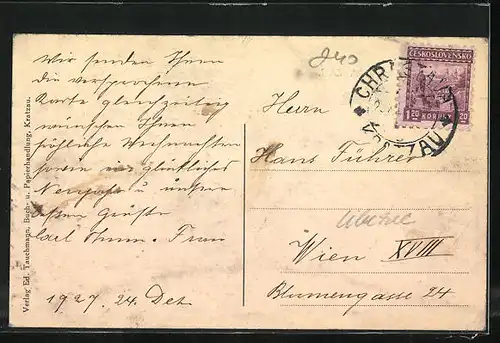 Wir senden Ihnen
die versprochene
Karte gleichzeitig
wünschen Ihnen
fröhliche Weihnachten
sowie ein glückliches
Neujahr u unsere
besten Grüße
Carl u. Frau
1927. 24. Dez.
Verlag Ed. Tauchmann, Buch- u. Papierhandlung, Kratzau.
840
ČESKOSLOVENSKO
1.20 KORUNY 1.20
CHRASTAVA
KRATZAU
Herrn
Hans Führer
Wien XVIII
Blumengasse 24